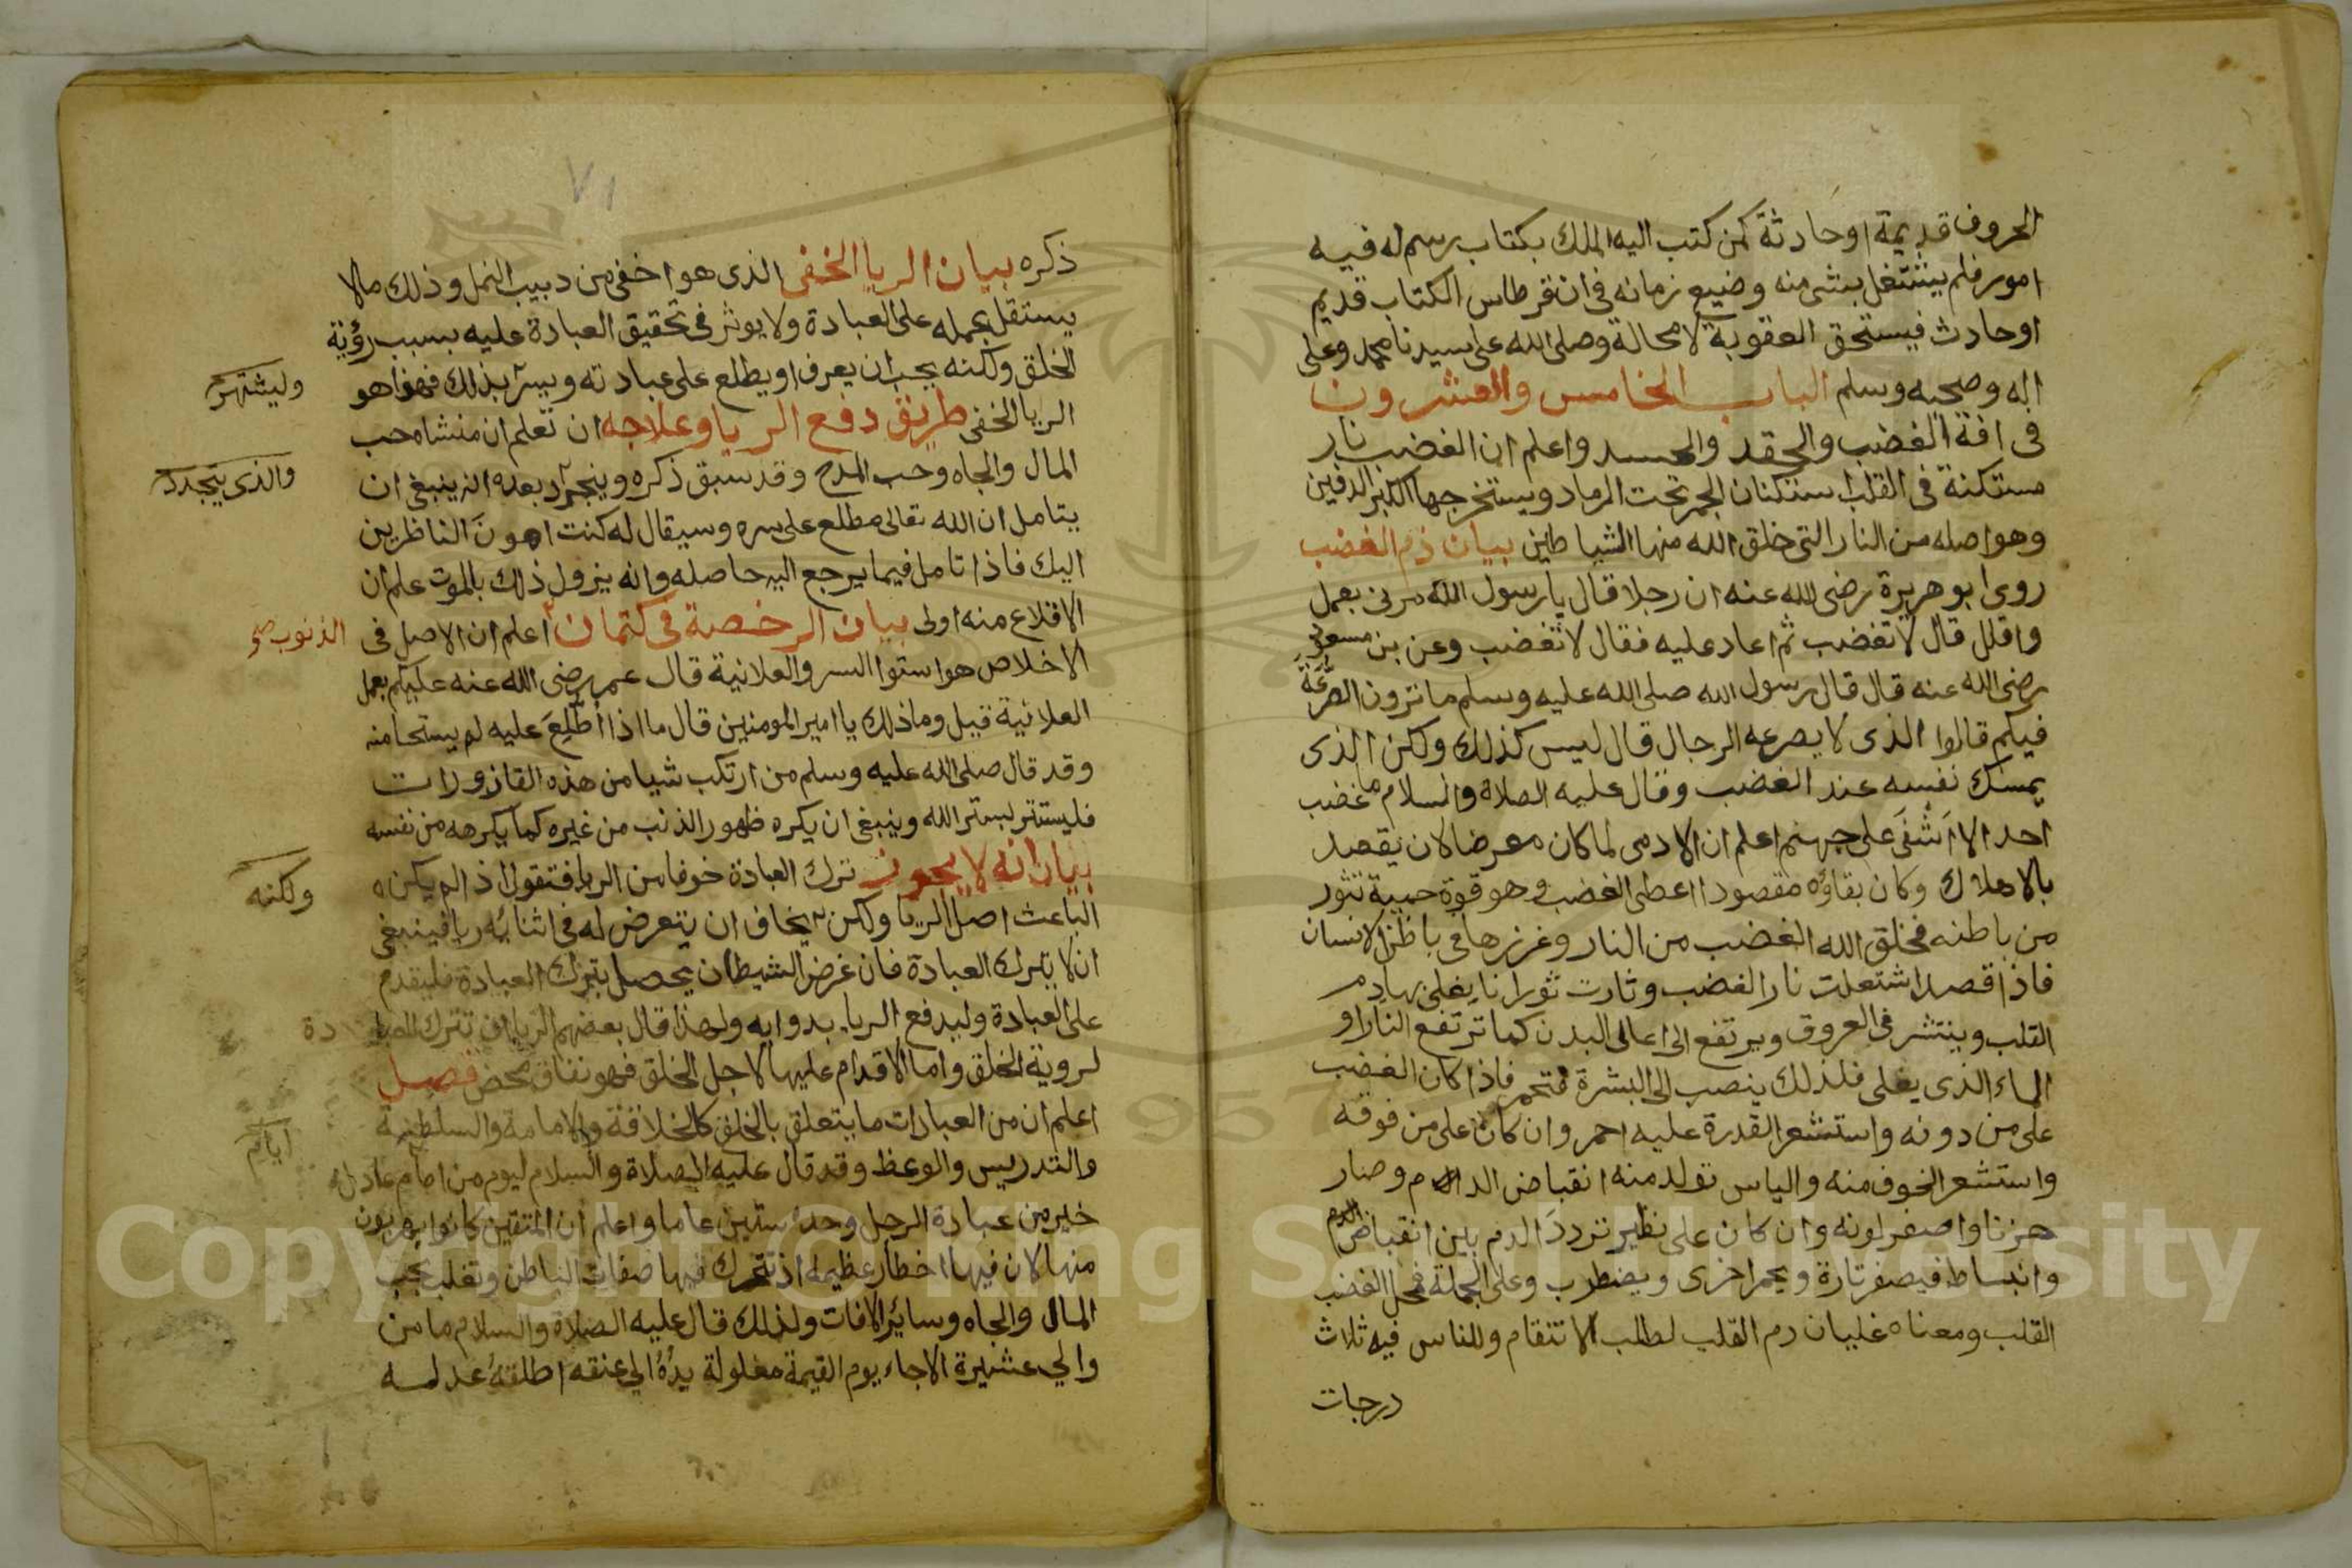 الحروف قديمة اوحادثة كمن كتب اليه الملك بكتاب رسم له فيه
امور فلم يشتغل بشى منه وضيع زمانه فى ان قرطاس الكتاب قديم
اوحادث فيستحق العقوبة لا محالة وصلى الله على سيدنا محمد وعلى
اله وصحبه وسلم الباب الخامس والعشرون
فى افة الغضب والحقد والحسد واعلم ان الغضب نار
مستكنة فى القلب استكنان الجمر تحت الرماد ويستخرجها الكبر الدفين
وهو اصله من النار التى خلق الله منها الشياطين بيان ذم الغضب
روى ابو هريرة رضى الله عنه ان رجلا قال يا رسول الله مرنى بعمل
واقلل قال لا تغضب ثم اعاد عليه فقال لا تغضب وعن بن مسعود
رضى الله عنه قال قال رسول الله صلى الله عليه وسلم ما ترون الصرعة
فيكم قالوا الذى لا يصرعه الرجال قال ليس كذلك ولكن الذى
يمسك نفسه عند الغضب وقال عليه الصلاة والسلام ما غضب
احد الا اشفى على جهنم اعلم ان الادمى لما كان معرضا لان يقصد
بالاهلاك وكان بقاؤه مقصودا اعطى الغضب وهو قوة حمية تثور
من باطنه فخلق الله الغضب من النار وغرزها فى باطن الانسان
فاذا قصد اشتعلت نار الغضب وثارت ثورانا يغلى بها دم
القلب وينتشر فى العروق ويرتفع الى اعالى البدن كما ترتفع النار او
الماء الذى يغلى فلذلك ينصب الى البشرة فتحمر فاذا كان الغضب
على من دونه واستشعر القدرة عليه احمر وان كان على من فوقه
واستشعر الخوف منه والياس تولد منه انقباض الدم وصار
حزنا واصفر لونه وان كان على نظير تردد الدم بين انقباض الدم
وانبساط فيصفر تارة ويحمر اخرى ويضطرب وعلى الجملة فمحل الغضب
القلب ومعناه غليان دم القلب لطلب الانتقام وللناس فيه ثلاث
درجات
٧١
ذكره بيان الريا الخفى الذى هو اخفى من دبيب النمل وذلك مالا
يستقل بحمله على العبادة ولا يوثر فى تحقيق العبادة عليه بسبب رؤية
الخلق ولكنه يحب ان يعرف او يطلع على عبادته ويسر بذلك فهذا هو
وليشتهر
الريا الخفى طريق دفع الريا وعلاجه ان تعلم ان منشاه حب
المال والجاه وحب المدح وقد سبق ذكره وينجرد بعده انه ينبغى ان
والذى يتجدد
يتامل ان الله تعالى مطلع على سره وسيقال له كنت اهون الناظرين
اليك فاذا تامل فيما يرجع اليه حاصله وانه يزول ذلك بالموت علم ان
الاقلاع منه اولى بيان الرخصة فى كتمان اعلم ان الاصل فى
الذنوب صح
الاخلاص هو استوا السر والعلانية قال عمر رضى الله عنه عليكم بعمل
العلانية قيل وما ذلك يا امير المومنين قال ما اذا اطلع عليه لم يستحا منه
وقد قال صلى الله عليه وسلم من ارتكب شيا من هذه القاذورات
فليستتر بستر الله وينبغى ان يكره ظهور الذنب من غيره كما يكرهه من نفسه
بيان انه لا يجوز ترك العبادة خوفا من الريا فتقول اذ الم يكن
ولكنه
الباعث اصل الريا ولكن يخاف ان يتعرض له فى اثنائه ريا فينبغى
ان لا يترك العبادة فان غرض الشيطان يحصل بترك العبادة فليقدم
على العبادة وليدفع الريا بدوايه ولهذا قال بعضهم الريا ان تترك العبا دة
لروية الخلق واما الاقدام عليها لاجل الخلق فهو نفاق محض فصل
اعلم ان من العبادات ما يتعلق بالخلق كالخلافة والامامة والسلطنة
والتدريس والوعظ وقد قال عليه الصلاة والسلام ليوم من امام عادل
خير من عبادة الرجل وحده ستين عاما واعلم ان المتقين كانوا يهربون
منها لان فيها اخطار عظيمة اذ تتحرك فيها صفات الباطن وتغلب بحب
المال والجاه وسائر الافات ولذلك قال عليه الصلاة والسلام ما من
والي عشيرة الا جاء يوم القيمة مغلولة يده الي عنقه اطلقه عدله